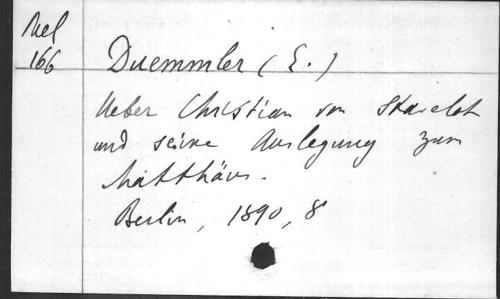 Mel
166
Duemmler (E.)
Ueber Christian von Stavelot
und seine Auslegung zum
Matthäus.
Berlin, 1890, 8